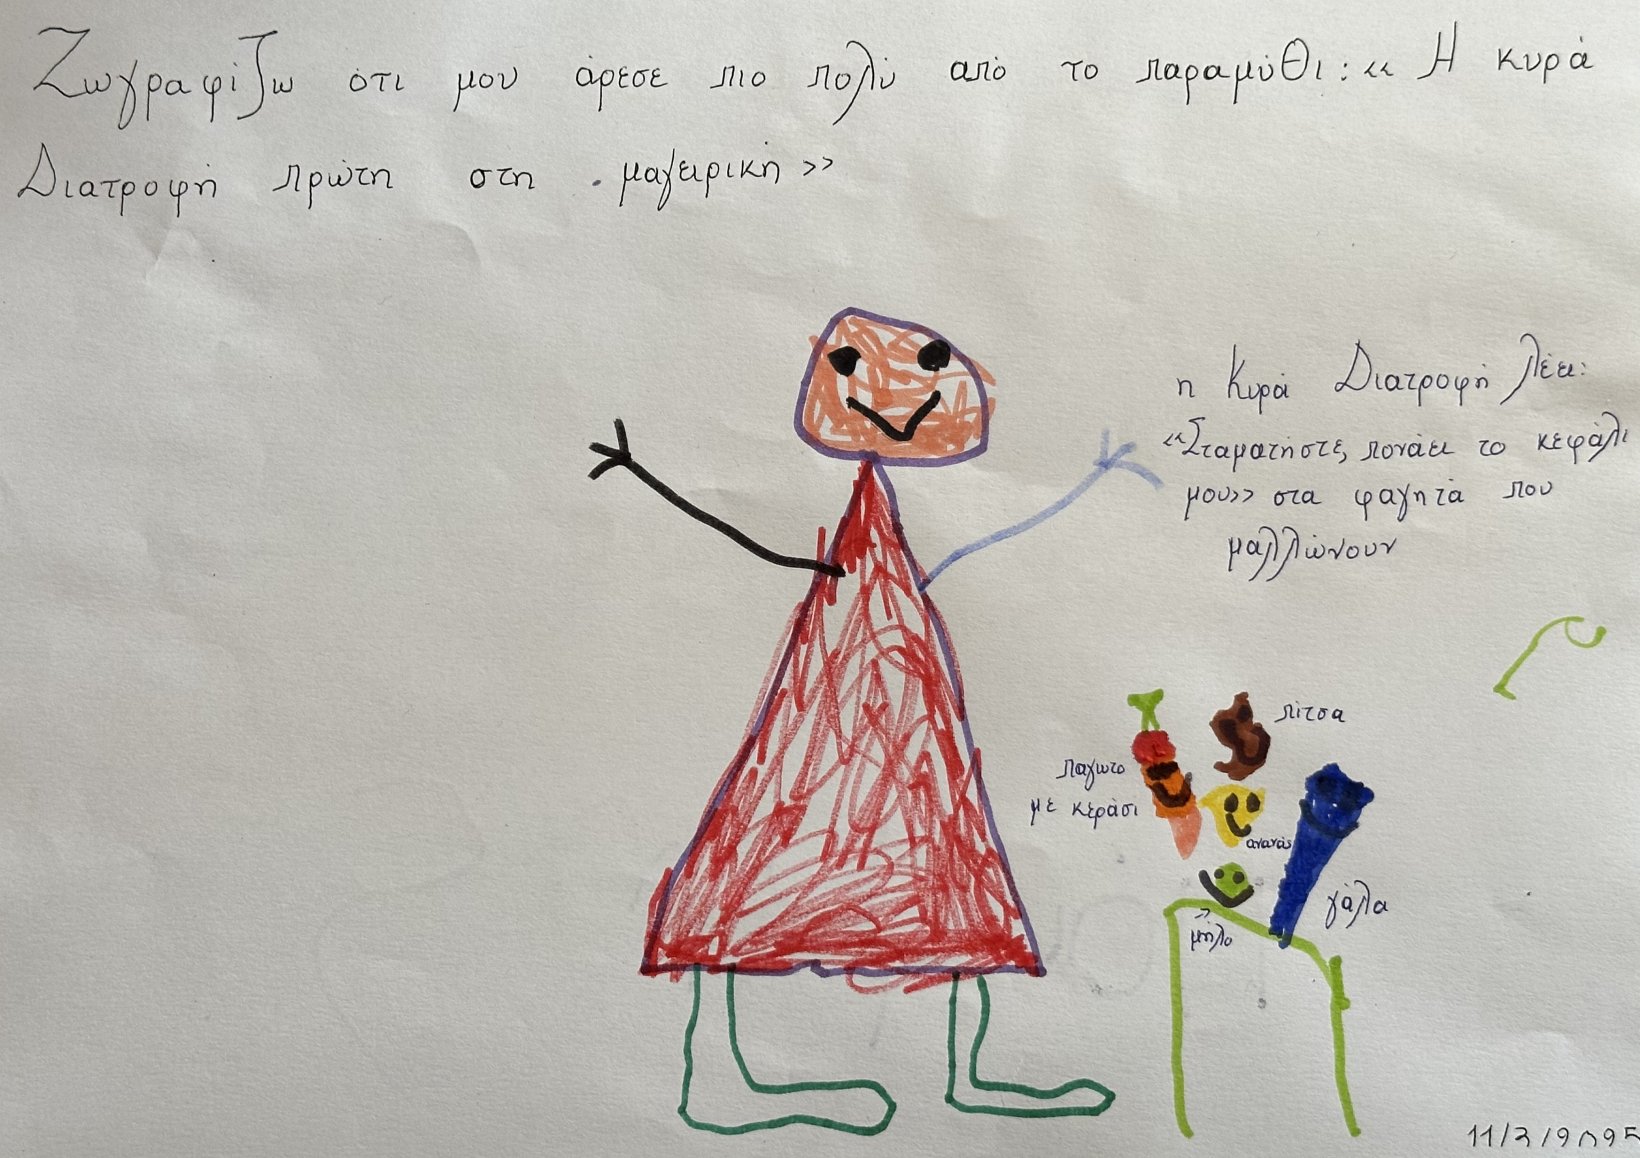 Ζωγραφίζω ότι μου άρεσε πιο πολύ από το παραμύθι: «Η κυρά
Διατροφή πρώτη στη μαγειρική»
η Κυρά Διατροφή λέει:
«Σταματήστε, πονάει το κεφάλι
μου» στα φαγητά που
μαλλώνουν
πίτσα
παγωτο
με κεράσι
ανανάς
γάλα
μήλο